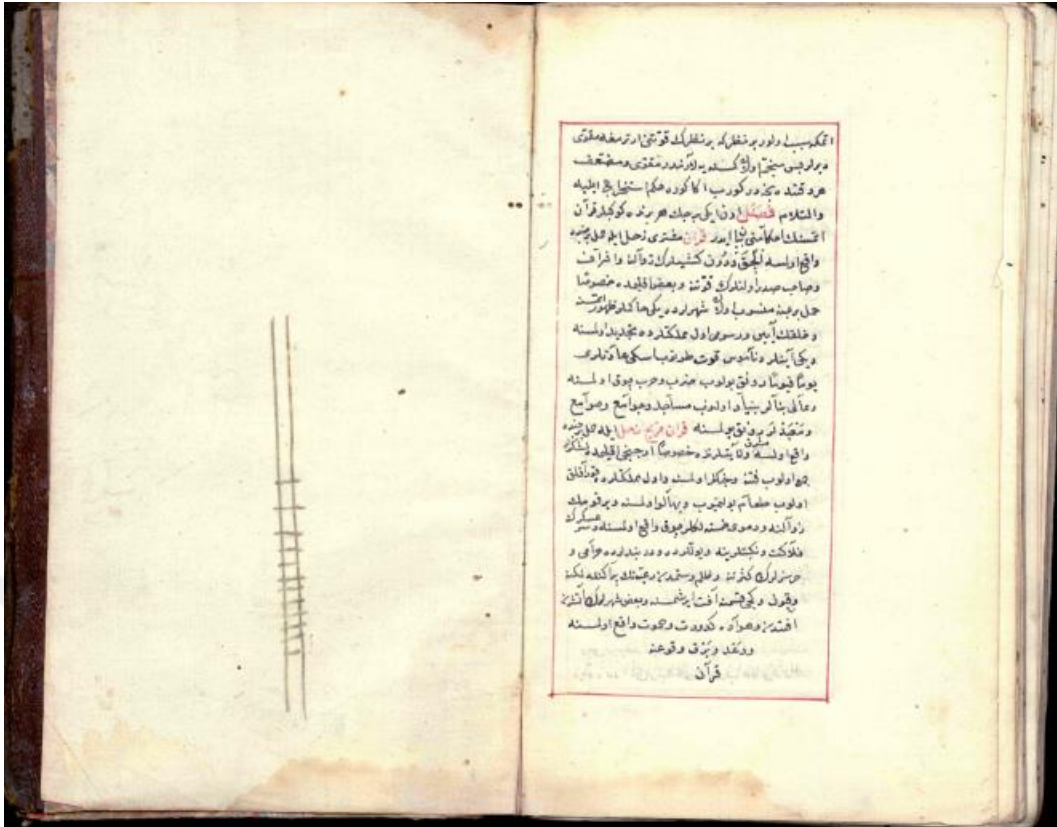 اتمكه سبب اولور بر نظر كه بر نظرك قوتنى ارترمغه مقوى
ديرلر پس منجم اولان
هر وقتده كوروب اكا كوره حكم استخراج ايليه
والسلام فصل اون ايكى برجك هر برنده كوكبلر قرآن
اتمسنك احكامنى بيان ايدر قرآن مشترى زحل ايله حمل برجنده
واقع اولسه الچق ودون كشيلرك زوالنه واشراف
وصاحب صدر اولنلرك قوتنه وبعض اقليمده خصوصا
حمل برجنه منسوب اولان شهرلرده يكى حاكملر ظهور اتمسنه
وخلقك آيين ورسومى اول مملكتلرده تجديد اولسنه
ويكى آيينلر وناموس قوت طوتوب اسكى عادتلرى
يوما فيوما رونق بولوب حرب چوق اولسنه
وعالى بنالر بنياد اولوب مساجد وجوامع وصوامع
ومعبدلر رونق بولسنه قران مريخ زحل ايله حمل برجنده
واقع اولسه ولايتلرنده خصوصا اوچنجى اقليمده
اولوب فتنه وجنكلر اولسنه واول مملكتلرده
اولوب طعام بولنميوب وبهالو اولسنه وبر قوجك
زوالنه ودموى خسته لكلر چوق واقع اولسنه وسر عسكرك
فلاكت ونكبتلرينه ويوللرده ودربندلرده حرامى و
خرسزلرك كثرتنه وظلم وستمدن رعيتنك پراكنده لكنه
وقيون وكچى قسمنه آفت ايرشمسنه وبعض شهرلرك آتشدن
وهواده كدورت ويبوست واقع اولسنه
ورعد وبرق وقوعنه
قرآن